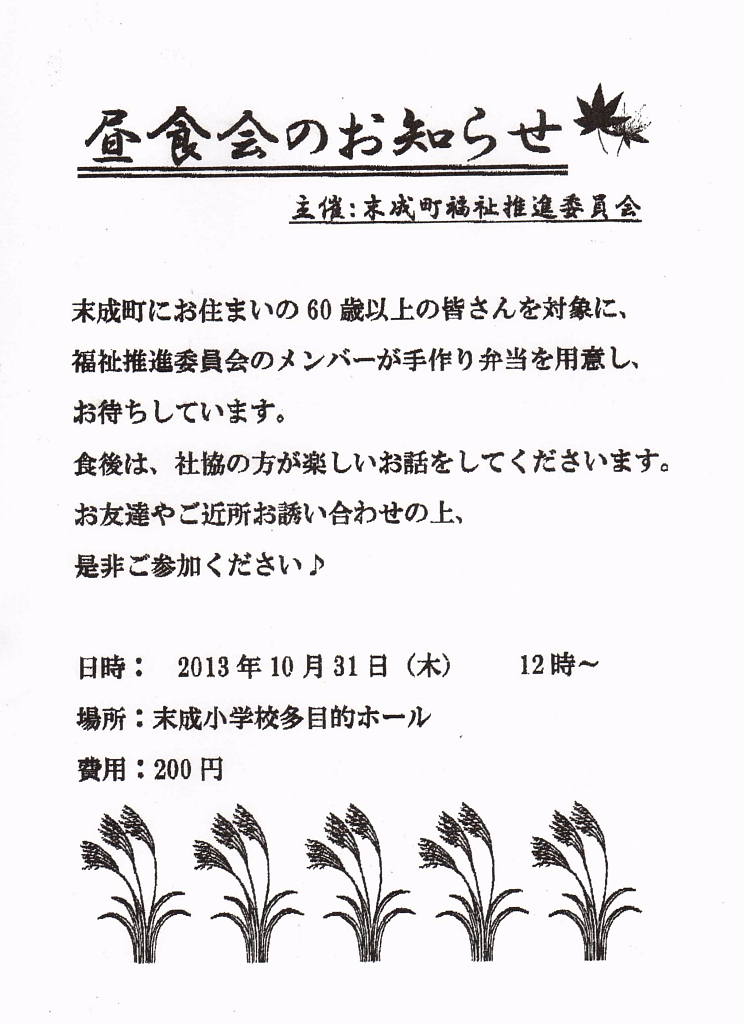 昼食会のお知らせ
主催:末成町福祉推進委員会
末成町にお住まいの60歳以上の皆さんを対象に、
福祉推進委員会のメンバーが手作り弁当を用意し、
お待ちしています。
食後は、社協の方が楽しいお話をしてくださいます。
お友達やご近所お誘い合わせの上、
是非ご参加ください♪
日時： 2013年10月31日（木） 12時～
場所：末成小学校多目的ホール
費用：200円